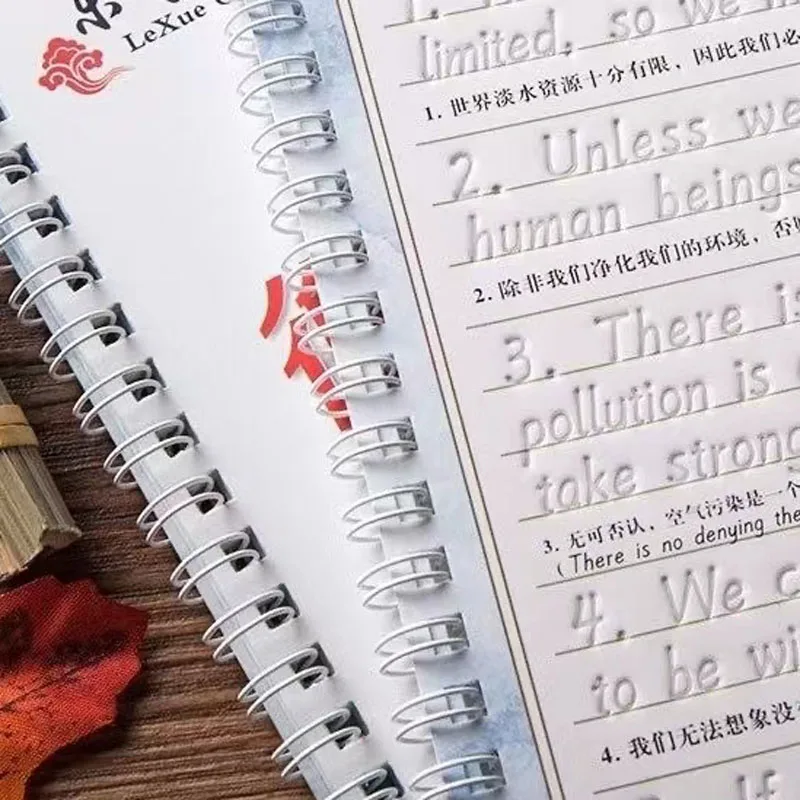 LeXue
limited, so we
1. 世界淡水资源十分有限，因此我们必
2. Unless we
human beings
2. 除非我们净化我们的环境，否则
3. There is
pollution is
take strong
3. 无可否认，空气污染是一个
(There is no denying the
4. We c
to be wi
4. 我们无法想象没